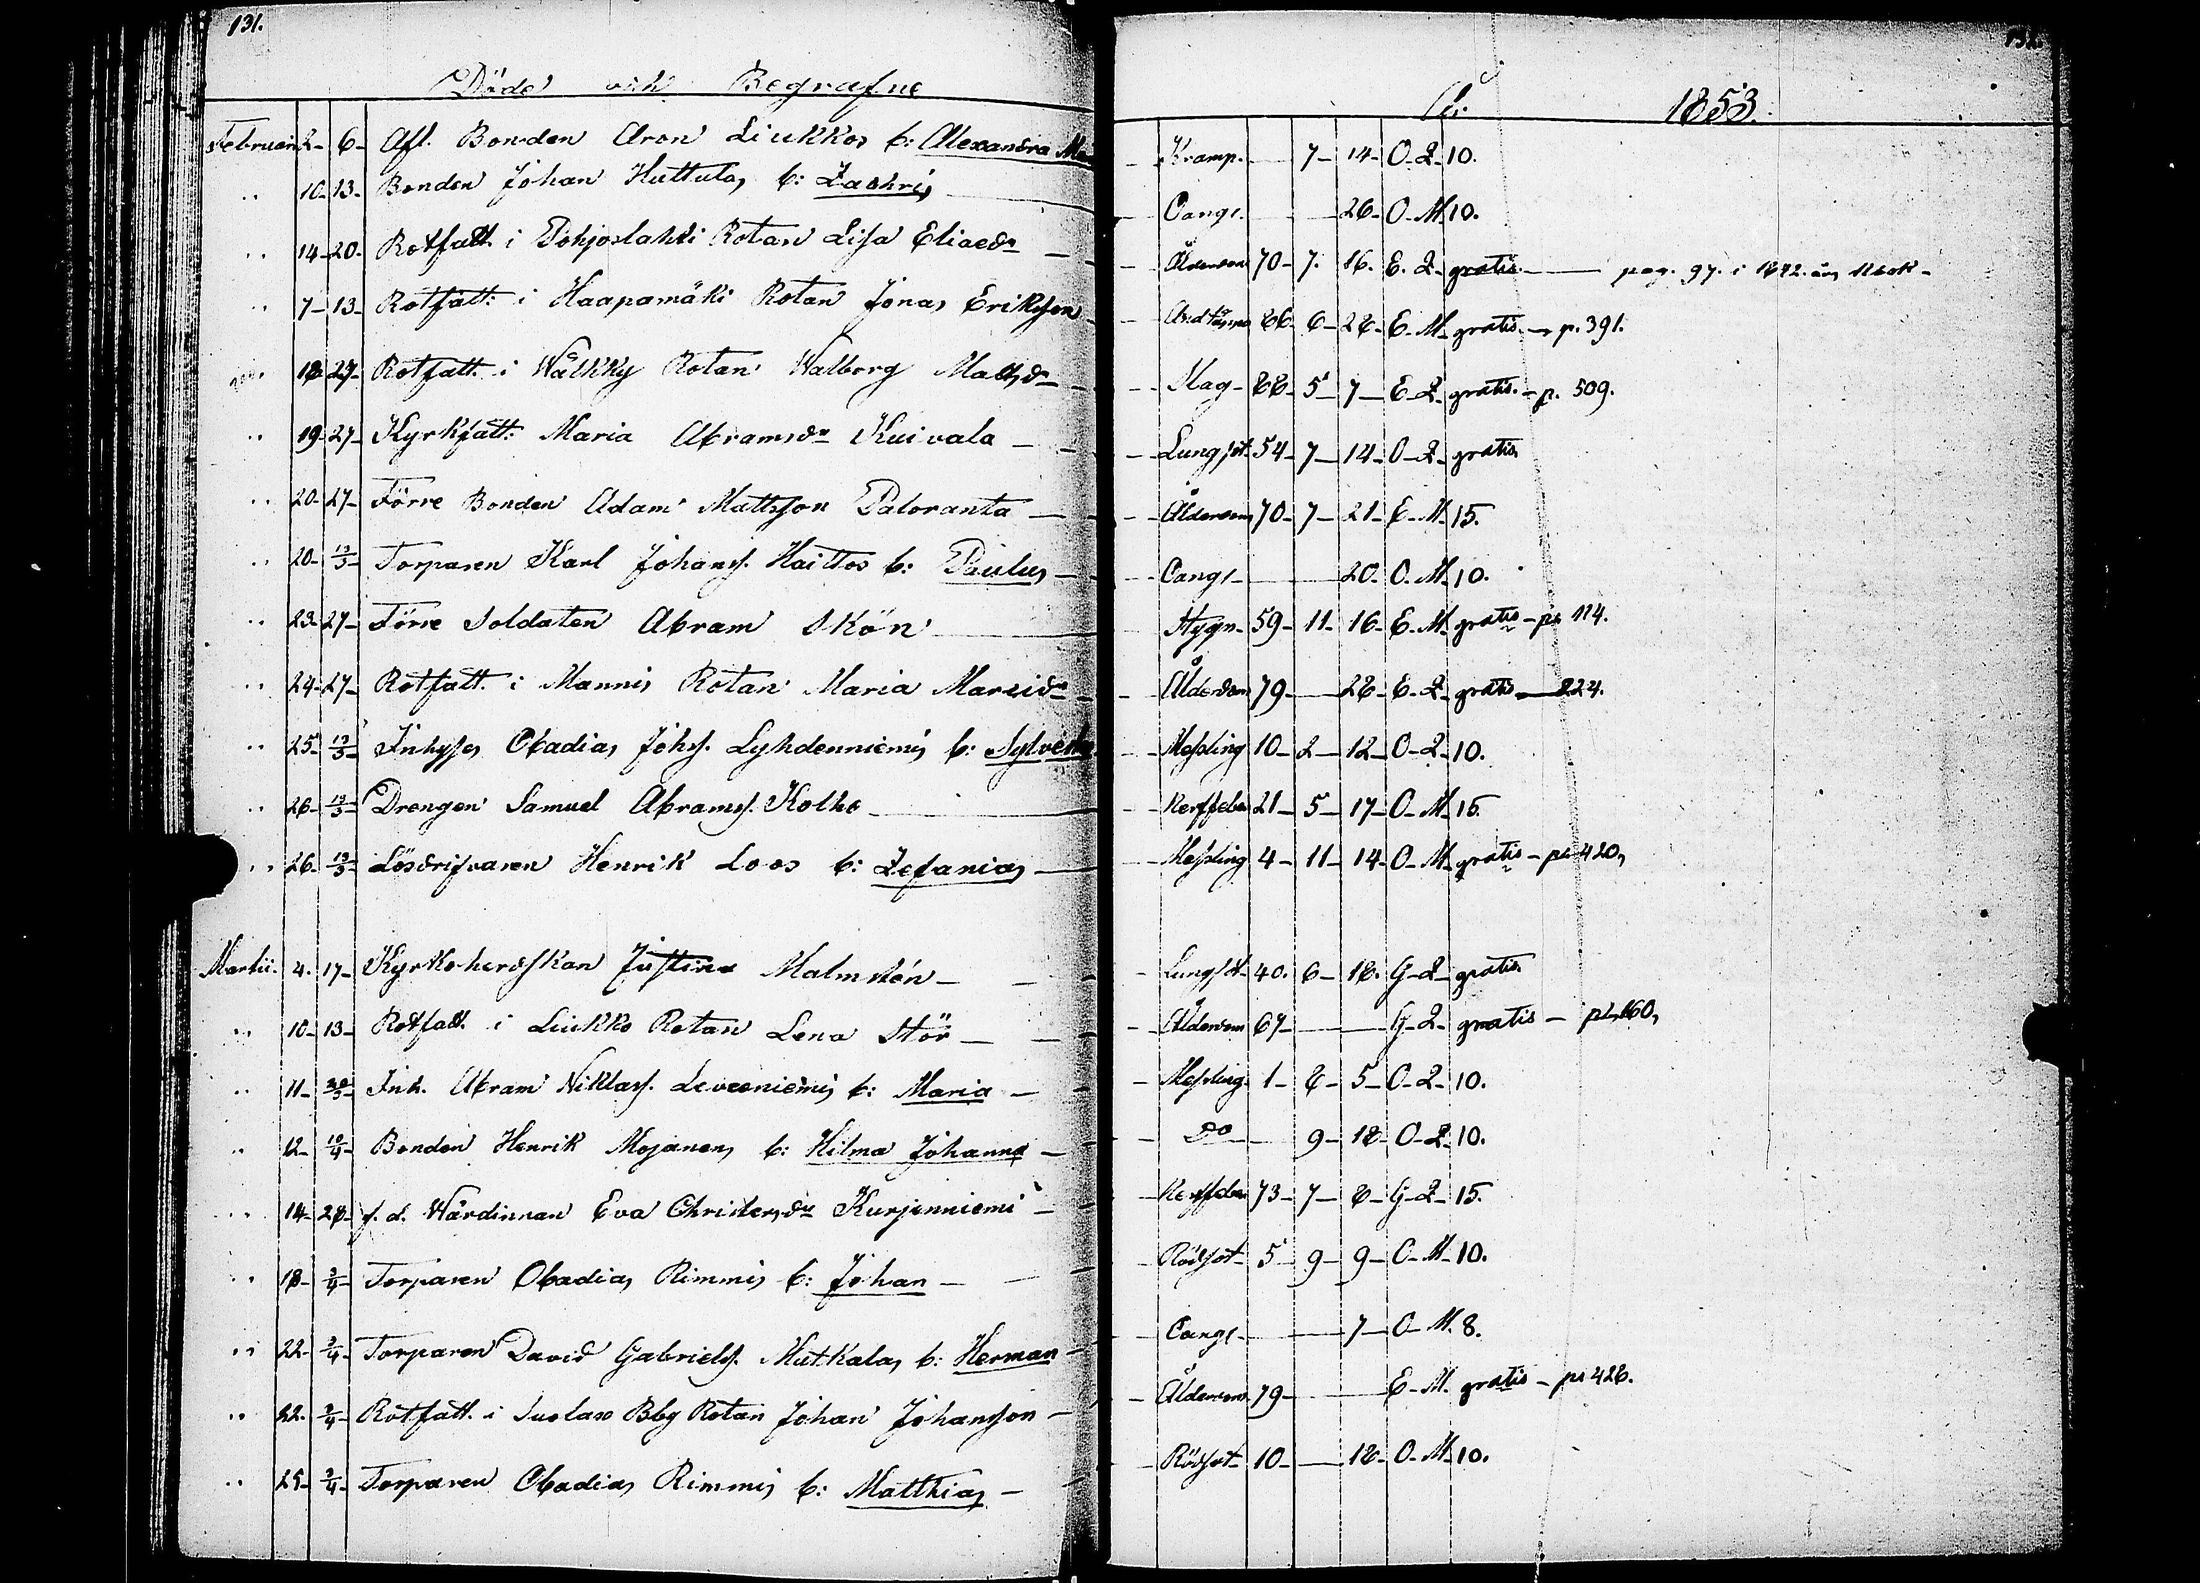 131.
132.
Döde och Begrafne
År 1853.
Februari 2 - 6 - Afl. Bonden Aron Liukkos b: Alexandra Ma - Kramp. - 7 - 14 - O - Q - 10.
" 10 - 13 - Bonden Johan Huttulas b: Zachris - Okänd - 26 - O - M 10.
" 14 - 20 - Rotfatt. i Pohjoslahti Rotan Lisa Eliaedr - Ålderdom 70 - 7. 16. E. Q - gratis - pag. 97. i 1842. års Kbok -
" 7 - 13 - Rotfatt: i Haapamäki Rotan Jonas Eriksson - 66 - 6 - 28 - E - M gratis - p. 391.
" 18 - 27 - Rotfatt. i Wälkky Rotan Walborg Mattsdr - Mag - 68 - 5 - 7 - E - Q - gratis. - p. 509.
" 19 - 27 - Kyrkfatt: Maria Abramsdr Kuivala - Lungsot - 54 - 7 - 14 - O - Q - gratis
" 20 - 27 - Förre Bonden Adam Mattsson Paloranta - Ålderdom 70 - 7 - 21 - E - M - 15.
" 20 - 13/3 - Torparen Karl Johanss. Haittos b: Paulus - Okänd - 20 - O - M - 10.
" 23 - 27 - Förre Soldaten Abram Skön - Stygn - 59 - 11 - 16 - E - M - gratis - p. 114.
" 24 - 27 - Rotfatt. i Mannis Rotan Maria Marcidr - Ålderdom 79 - 28 - E - Q - gratis - 224.
" 25 - 13/3 - Inhyses Obadias Johss. Lyhdenniemis b: Sylves - Messling 10 - 2 - 12 - O - Q - 10.
" 26 - 13/3 Drengen Samuel Abramss. Kolho - Nerffeber 21 - 5 - 17 - O - M - 15.
" 26 - 13/3 - Lösdrifvaren Henrik Loos b: Zefanias - Messling 4 - 11 - 14 - O - M - gratis - p. 420,
Martii. 4. 17 - Kyrkoherdskan Justina Malmstén - Lungsot - 40. 6 - 18. G - Q - gratis
" 10 - 13 - Rotfatt. i Liukko Rotan Lena Stör - Ålderdom 67 - G - Q - gratis - p. 160,
" 11 - 20/3 - Inh. Abram Niklass. Leveeniemis b: Maria - Messling 1 - 8 - 5 - O - Q - 10.
" 12 - 10/4 - Bonden Henrik Mojanens b: Hilma Johanna - Do - 9 - 18 - O - Q - 10.
" 14 - 28 - f. d. Wärdinnan Eva Christersdr Kurjenniemi - Nerffeber 73 - 7 - 8 - G - Q - 15.
" 18 - 3/4 - Torparen Obadias Rimmis b: Johan - Rödsot - 5 - 9 - 9 - O - M - 10.
" 22 - 3/4 - Torparen David Gabrielss. Mutkalas b: Herman - Okänd - 7 - O - M. 8.
" 22. 3/4 - Rotfatt. i Suolax Bby Rotan Johan Johansson - Ålderdom 79 - E - M. gratis - p. 428.
" 25 - 3/4 - Torparen Obadias Rimmis b: Matthias - Rödsot - 10 - 18 - O - M - 10.